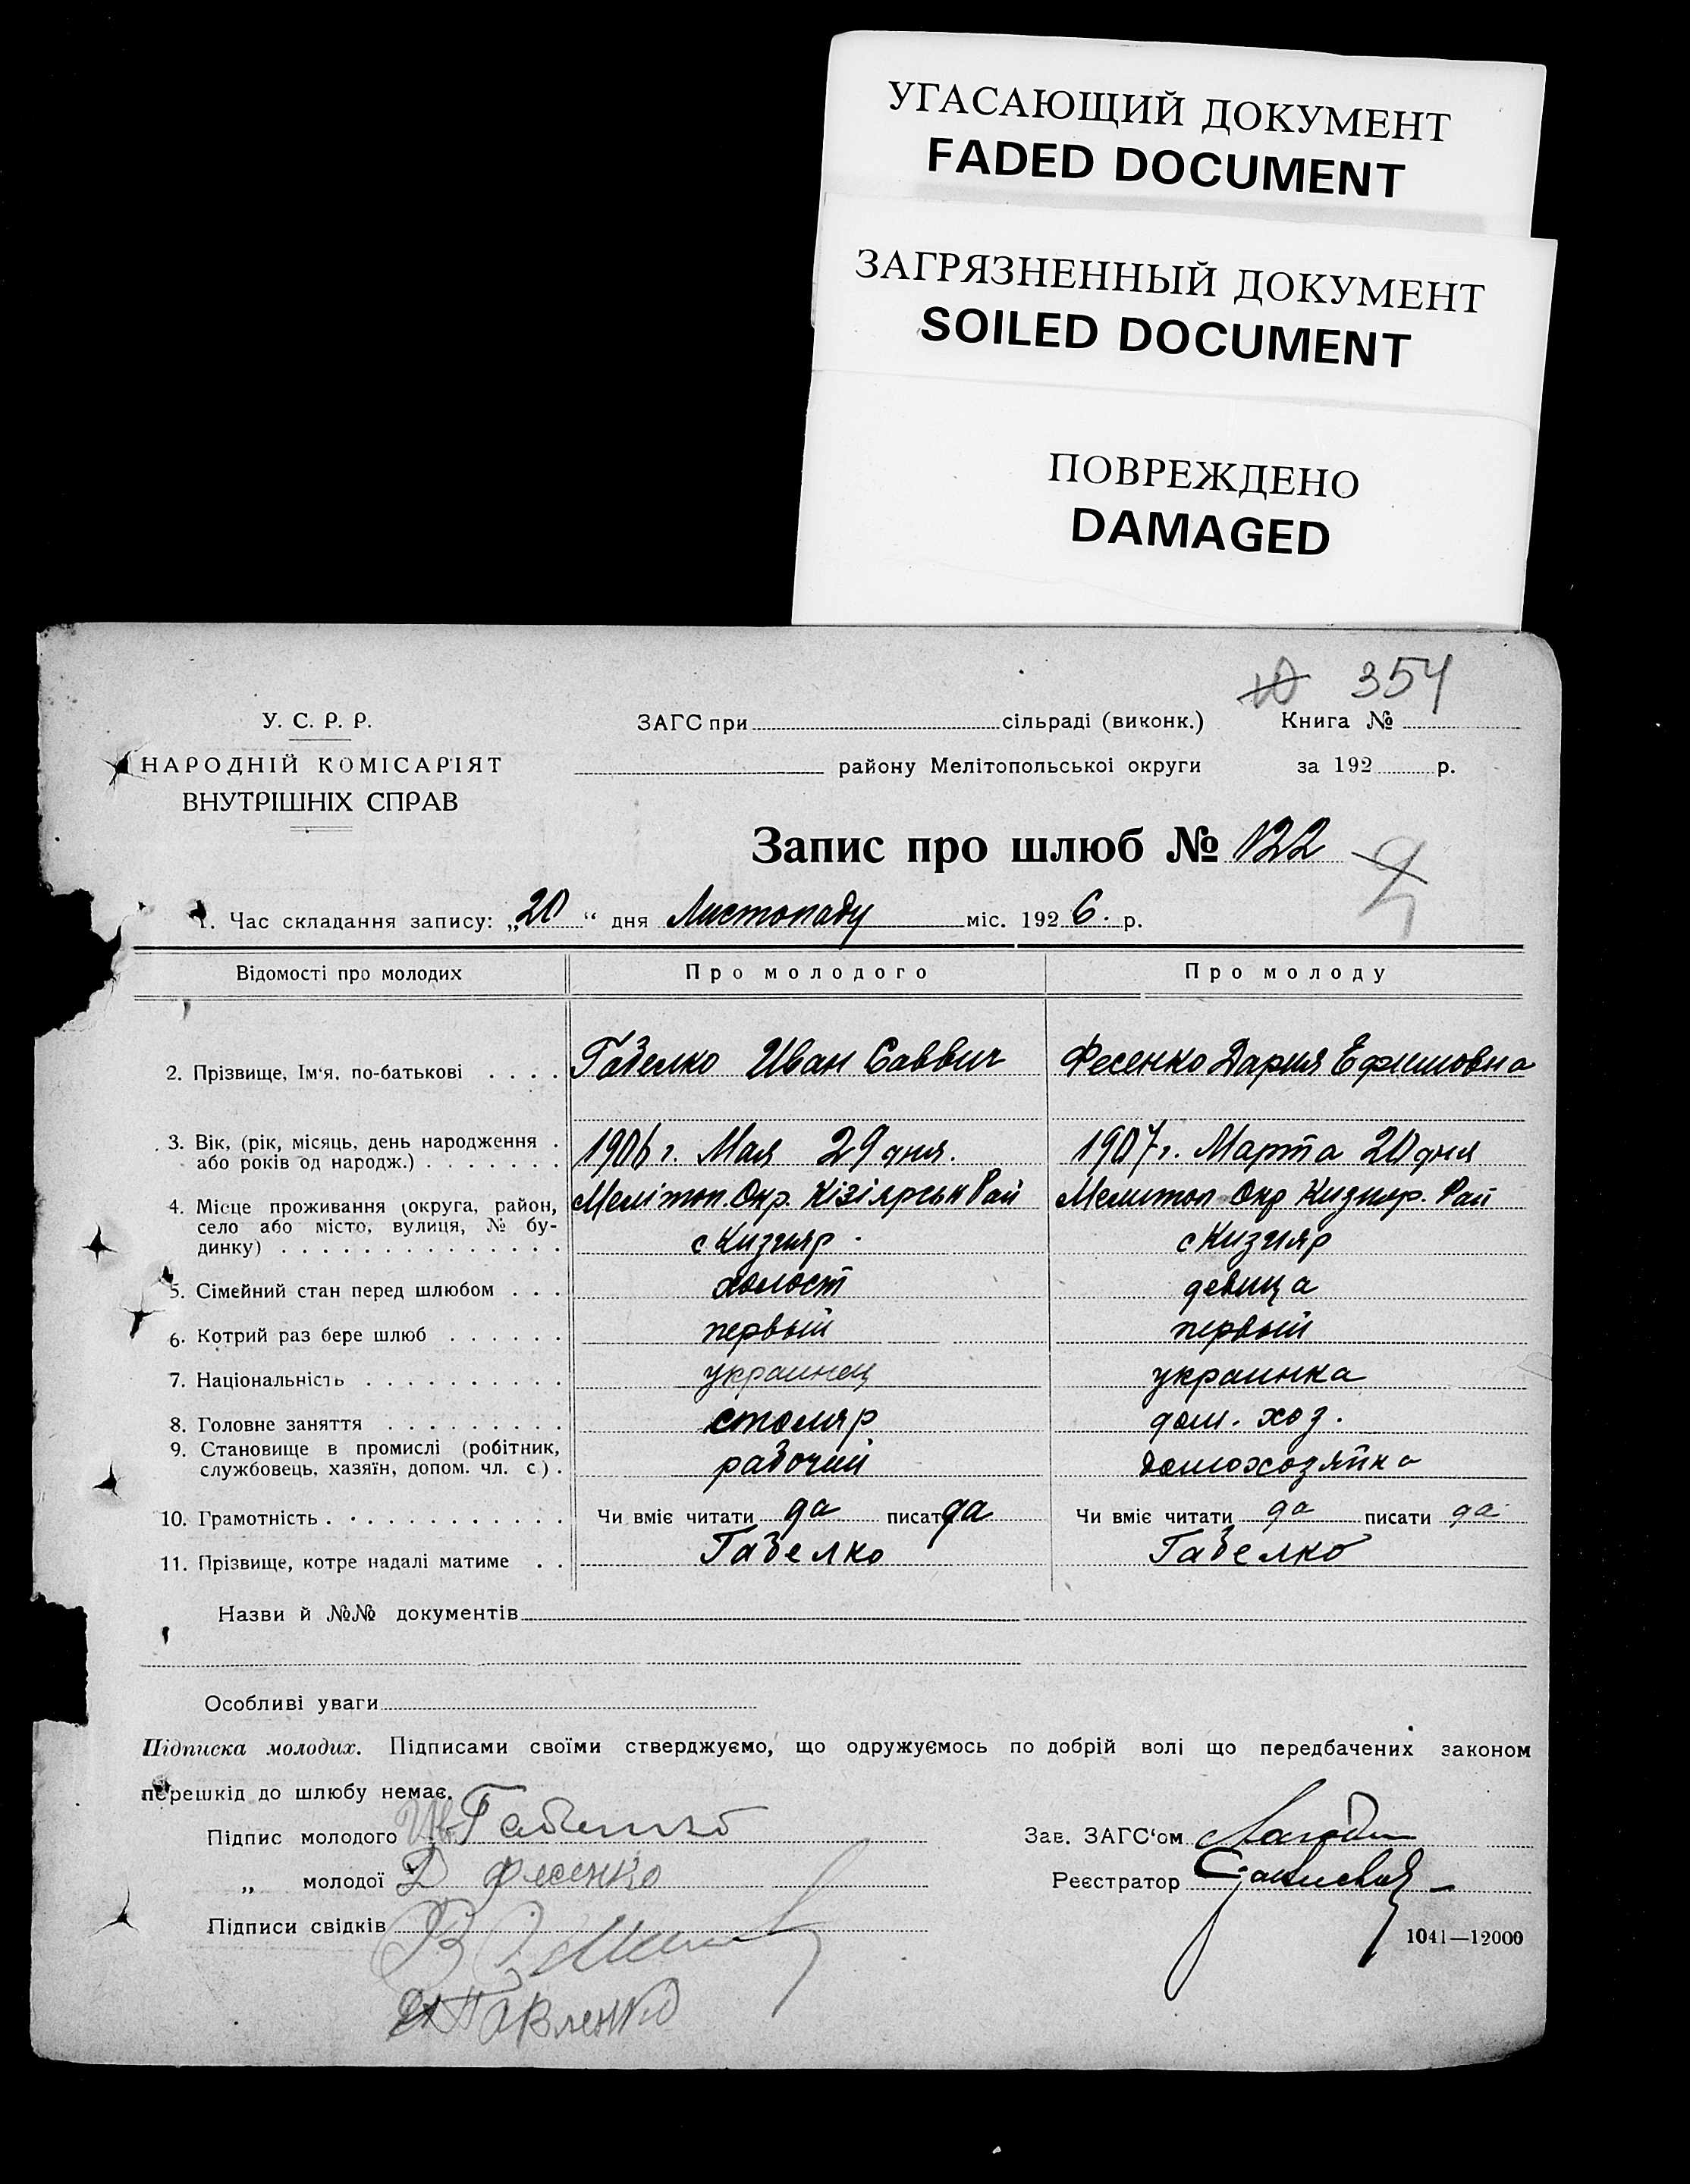 УГАСАЮЩИЙ ДОКУМЕНТ
FADED DOCUMENT
ЗАГРЯЗНЕННЫЙ ДОКУМЕНТ
SOILED DOCUMENT
ПОВРЕЖДЕНО
DAMAGED
354
У. С. Р. Р. ЗАГС при сільраді (виконк.) Книга №
НАРОДНІЙ КОМІСАРІЯТ району Мелітопольської округи за 192 р.
ВНУТРІШНІХ СПРАВ
Запис про шлюб № 122
1. Час складання запису: „20“ дня Листопаду міс. 1926. р.
Відомості про молодих Про молодого Про молоду
2. Прізвище, Ім'я, по-батькові . . . . Габелко Иван Саввич Фесенко Дария Ефимовна
3. Вік, (рік, місяць, день народження . 1906 г. Мая 29 дня. 1907 г. Марта 20 дня
або років од народж.) . . . . . . .
4. Місце проживання (округа, район, Мелітоп. Окр. Кізіярськ Рай Мелитоп Окр Кизияр. Рай
село або місто, вулиця, № бу- с Кизияр с Кизияр
динку) . . . . . . . . . . . . . .
5. Сімейний стан перед шлюбом . . . холост девица
6. Котрий раз бере шлюб . . . . . . первый первый
7. Національність . . . . . . . . . . украинец украинка
8. Головне заняття . . . . . . . . . столяр дом. хоз.
9. Становище в промислі (робітник, рабочий домохозяйка
службовець, хазяїн, допом. чл. с.) .
10. Грамотність . . . . . . . . . . . . Чи вміє читати да писат да Чи вміє читати да писати да
11. Прізвище, котре надалі матиме . . Габелко Габелко
Назви й №№ документів
Особливі уваги
Підписка молодих. Підписами своїми стверджуємо, що одружуємось по добрій волі що передбачених законом
перешкід до шлюбу немає.
Підпис молодого Ив Габелко Зав. ЗАГС‘ом
„ молодої Д Фесенко Реєстратор
Підписи свідків
1041—12000
Павленко